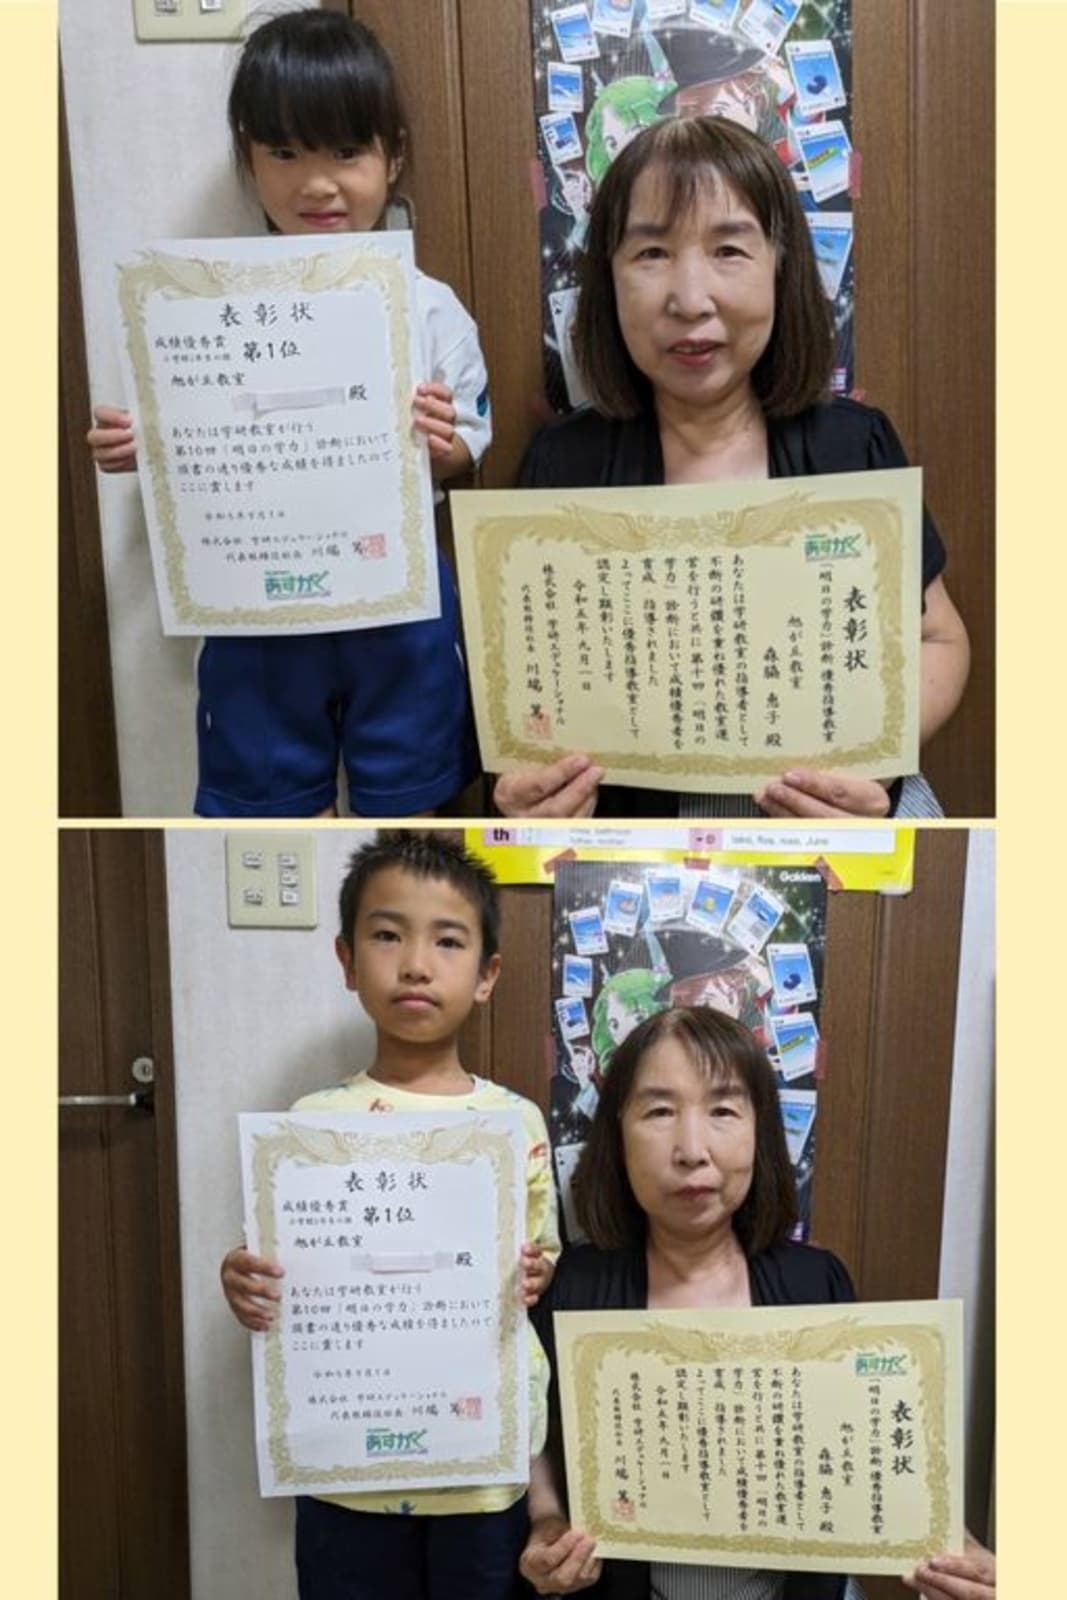 表彰状
成績優秀賞 第1位
旭が丘教室
殿
あなたは学研教室が行う
第10回「明日の学力」診断において
頭書の通り優秀な成績を得ましたので
ここに賞します
令和5年9月1日
株式会社 学研エデュケーショナル
代表取締役社長 川端 篤
あすがく
あすがく
表彰状
「明日の学力」診断 優秀指導教室
旭が丘教室
森脇 恵子 殿
あなたは学研教室の指導者として
不断の研鑽を重ね優れた教室運
営を行うと共に 第十回「明日の
学力」診断において成績優秀者を
育成 指導されました
よってここに優秀指導教室として
認定し顕彰いたします
令和五年 九月一日
株式会社 学研エデュケーショナル
代表取締役社長 川端 篤
th
Gakken
表彰状
成績優秀賞 第1位
旭が丘教室
殿
あなたは学研教室が行う
第10回「明日の学力」診断において
頭書の通り優秀な成績を得ましたので
ここに賞します
令和5年9月1日
株式会社 学研エデュケーショナル
代表取締役社長 川端 篤
あすがく
あすがく
表彰状
「明日の学力」診断 優秀指導教室
旭が丘教室
森脇 恵子 殿
あなたは学研教室の指導者として
不断の研鑽を重ね優れた教室運
営を行うと共に 第十回「明日の
学力」診断において成績優秀者を
育成 指導されました
よってここに優秀指導教室として
認定し顕彰いたします
令和五年 九月一日
株式会社 学研エデュケーショナル
代表取締役社長 川端 篤